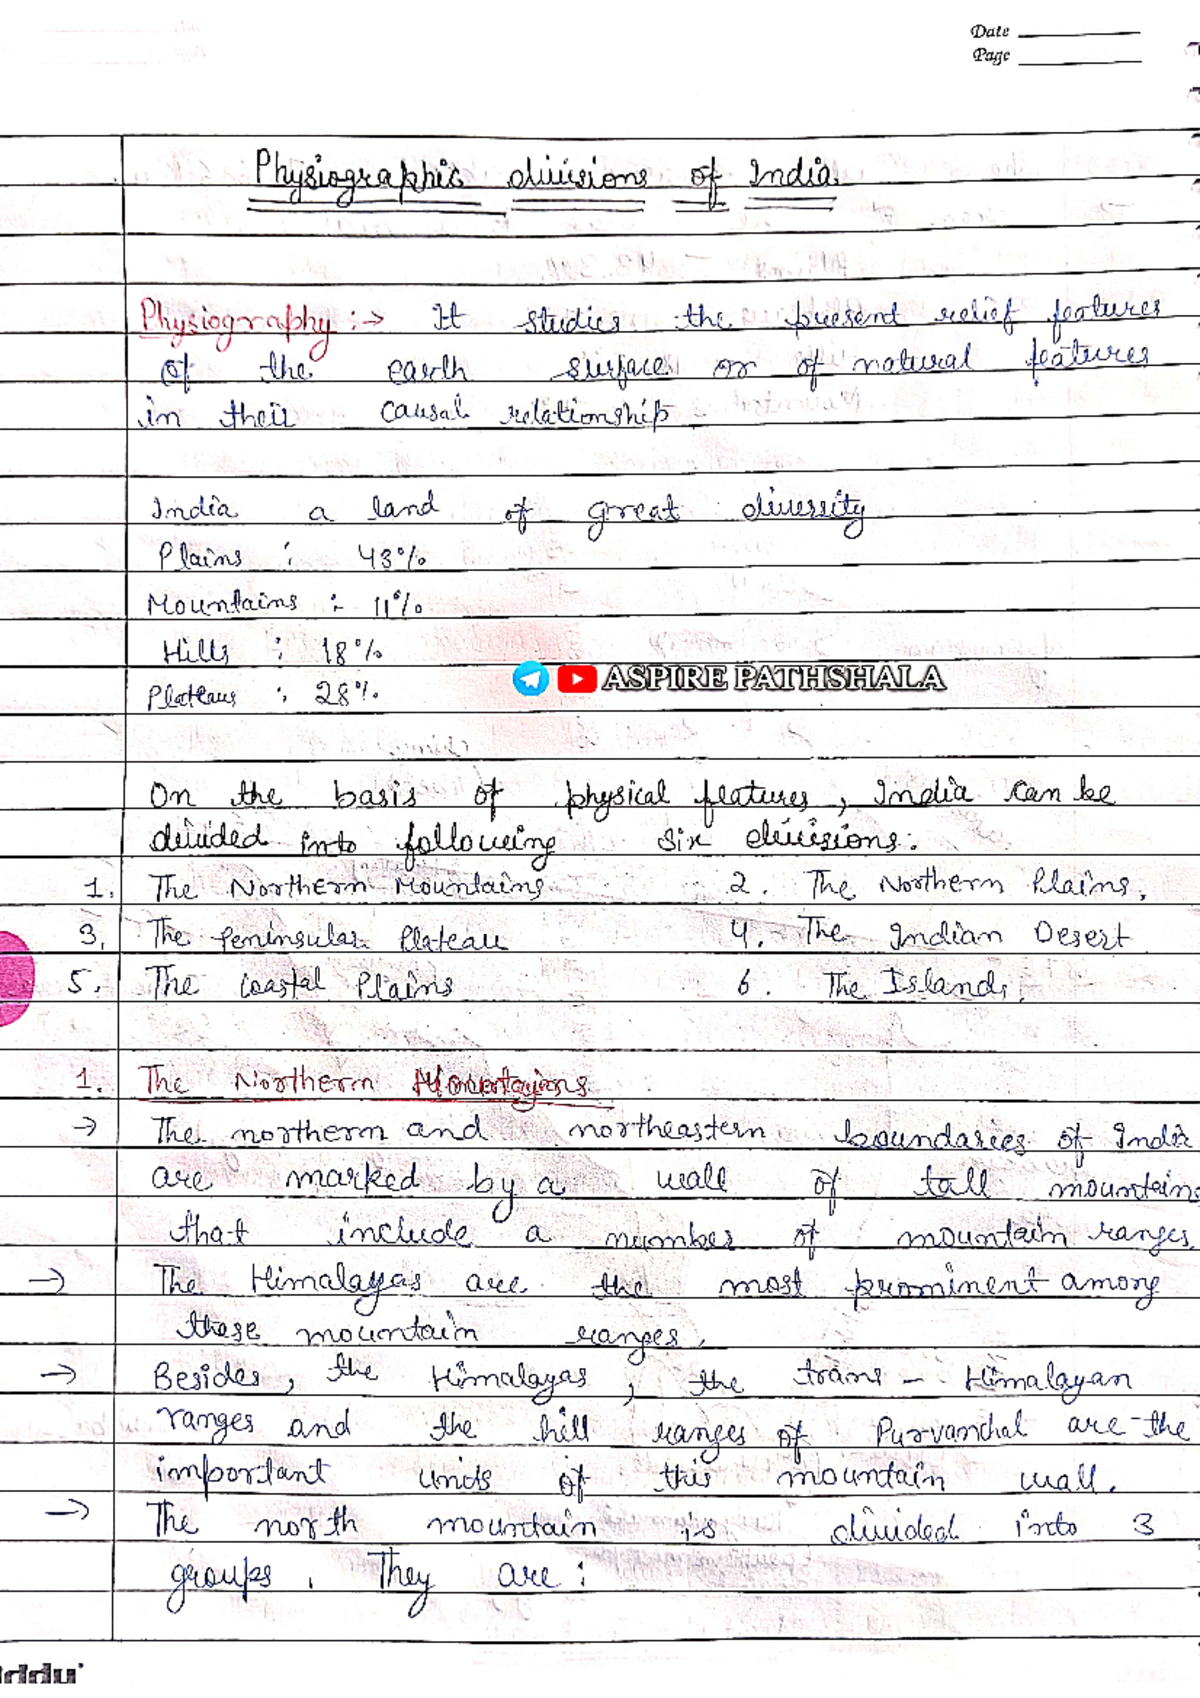 Date
Page
Physiographic divisions of India
Physiography :→ It studies the present relief features
of the earth surface or of natural features
in their causal relationship
India a land of great diversity
Plains : 43%
Mountains :- 11%
Hills : 18%
ASPIRE PATHSHALA
Plateaus : 28%
On the basis of physical features, India can be
divided into following six divisions:
1. The Northern Mountains 2. The Northern Plains,
3. The Peninsular Plateau 4. The Indian Desert
5. The Coastal Plains 6. The Islands,
1. The Northern Mountains
→ The northern and northeastern boundaries of India
are marked by a wall of tall mountains
that include a number of mountain ranges.
→ The Himalayas are the most prominent among
these mountain ranges.
→ Besides, the Himalayas, the trans-Himalayan
ranges and the hill ranges of Purvanchal are the
important units of this mountain wall.
→ The north mountain is divided into 3
groups. They are: